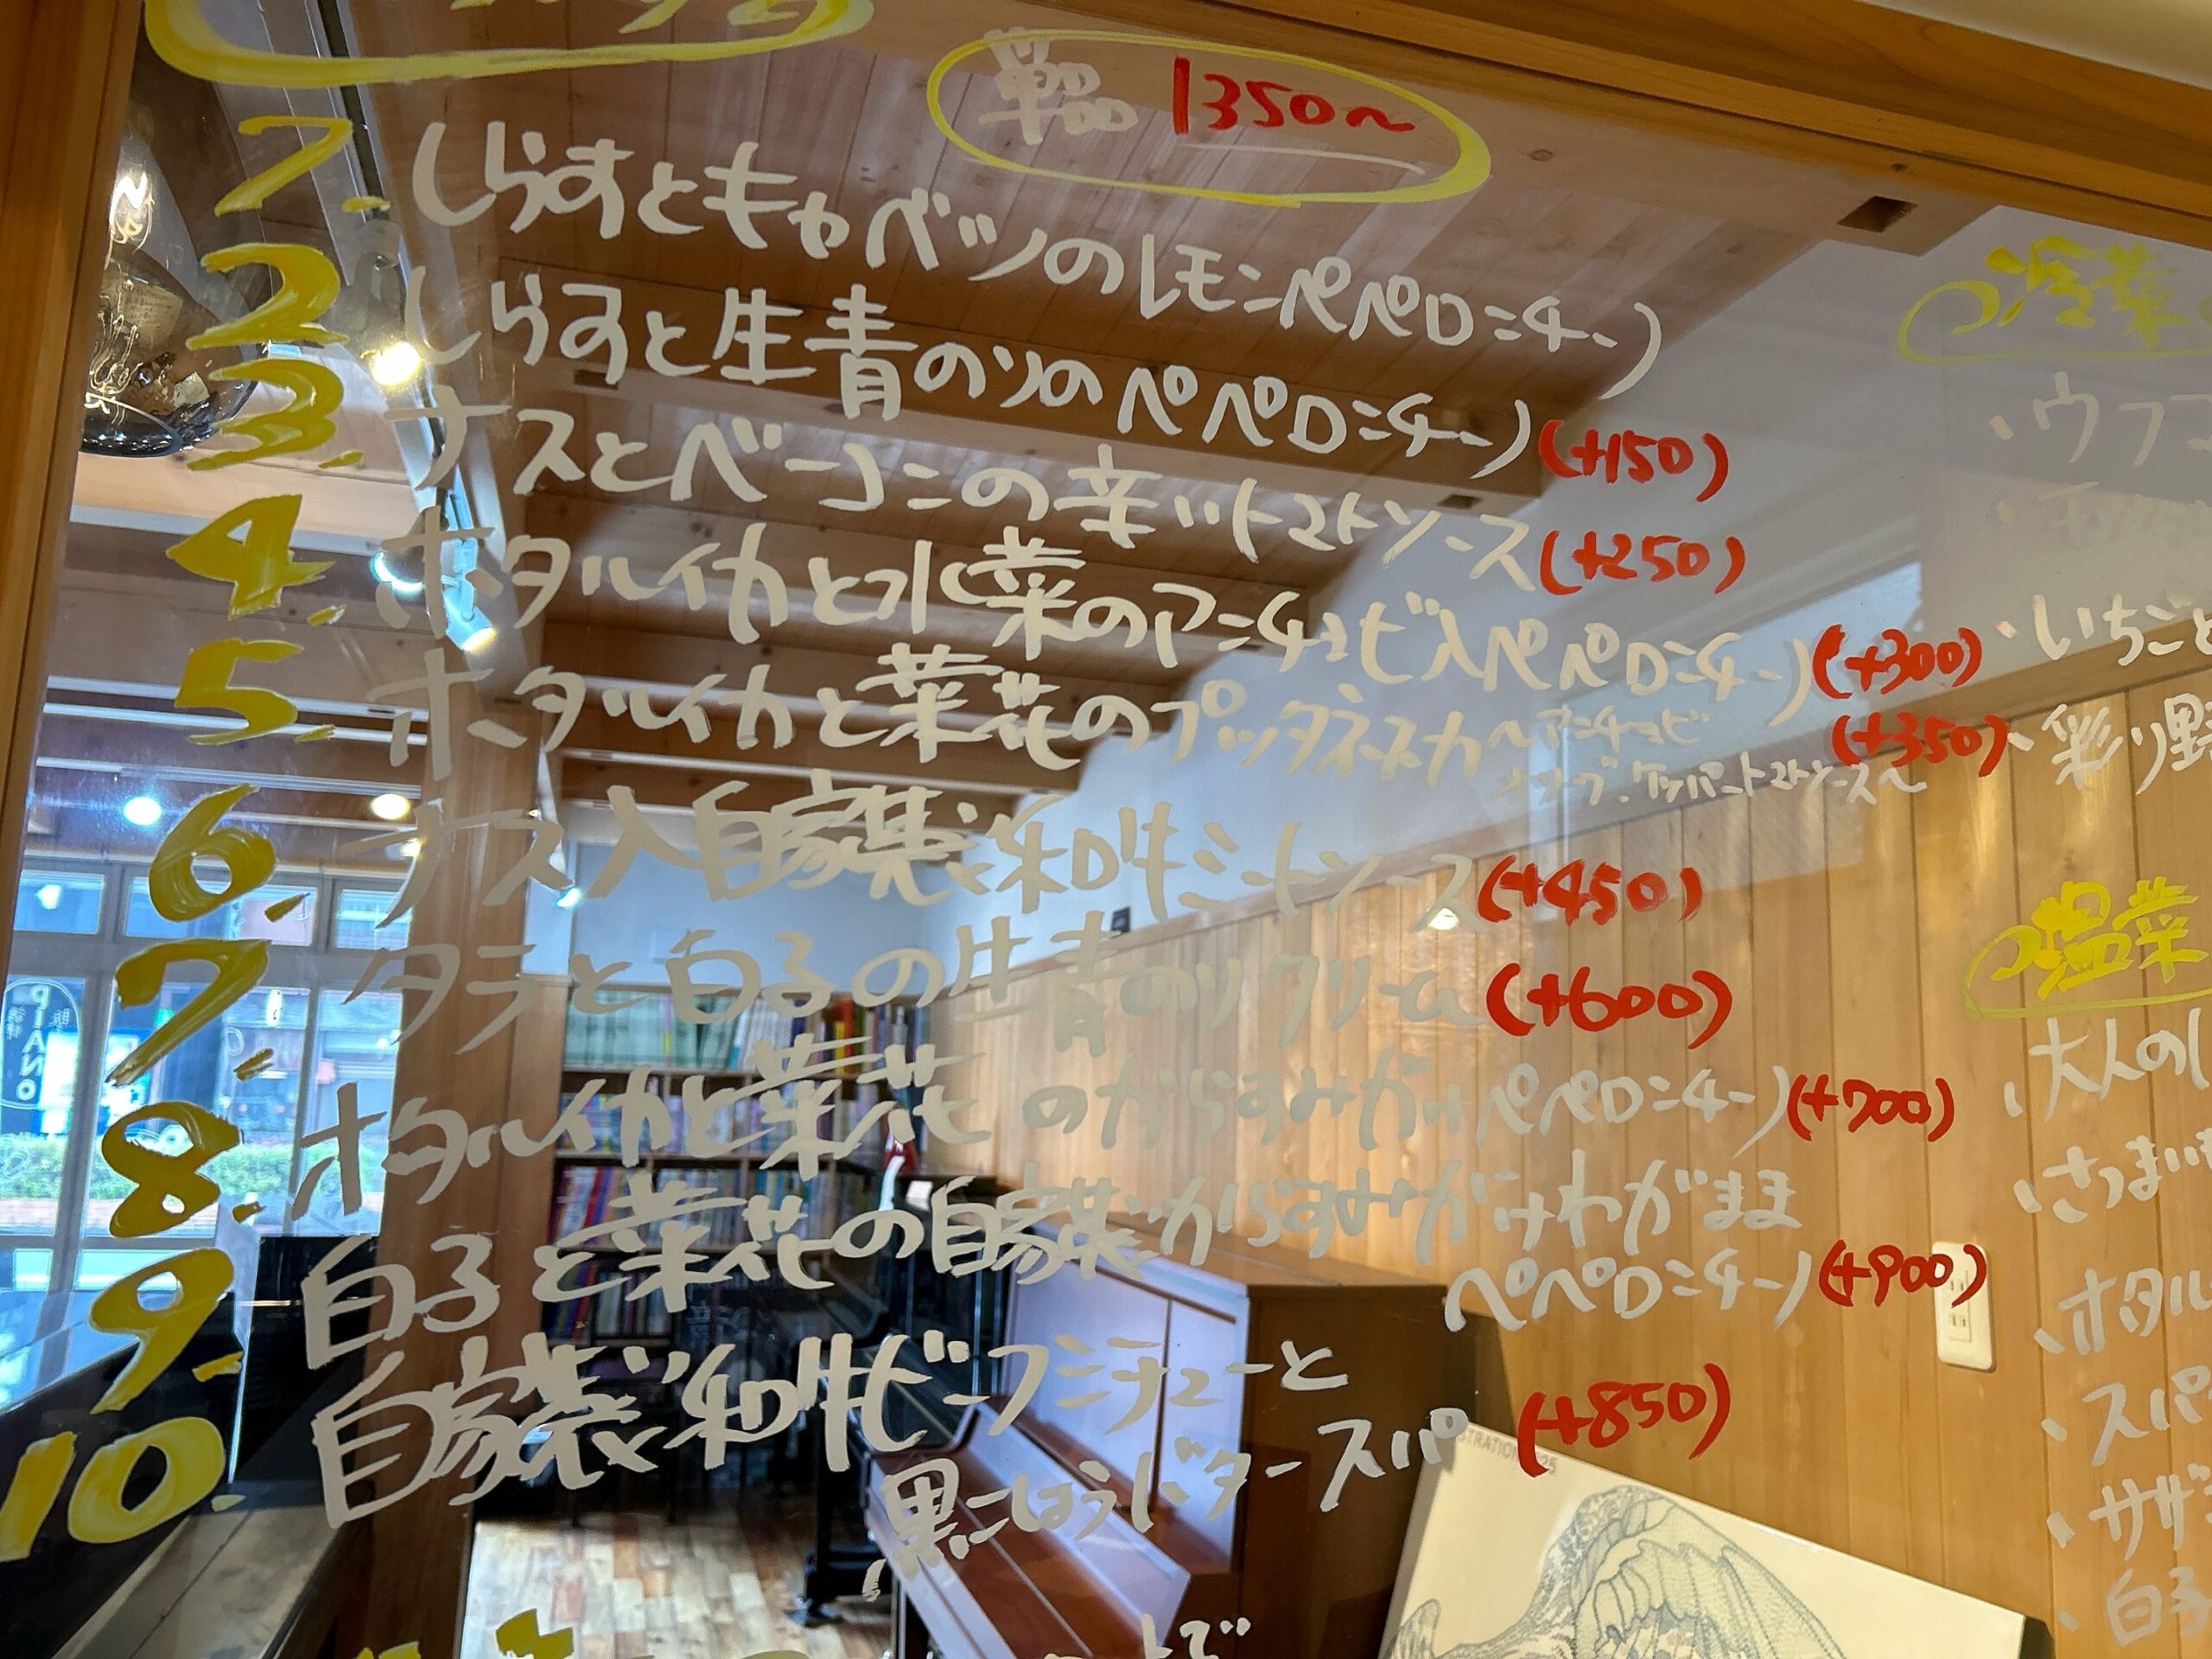 単品 1350〜
1. しらすとキャベツのレモンペペロンチーノ
2. しらすと生青のりのペペロンチーノ(+150)
3. ナスとベーコンの辛いトマトソース(+250)
4. ホタルイカと水菜のアンチョビ入ペペロンチーノ(+300)
5. ホタルイカと菜花のプッタネスカ 〜アンチョビ (+350)
オリーブ、ケッパートマトソース〜
6. ナス入自家製和牛ミートソース(+450)
7. タラと白子の生青のりクリーム(+600)
8. ホタルイカと菜花のからすみがけペペロンチーノ(+700)
9. 白子と菜花の自家製からすみがけわがまま
ペペロンチーノ(+900)
10. 自家製和牛ビーフシチューと
黒こしょうバタースパ(+850)
トで
冷菜
・ウフマ
・いちごと
・彩り野
温菜
・大人の
・さつまい
・ホタル
・スパ
・サザ
・白子
PIANO